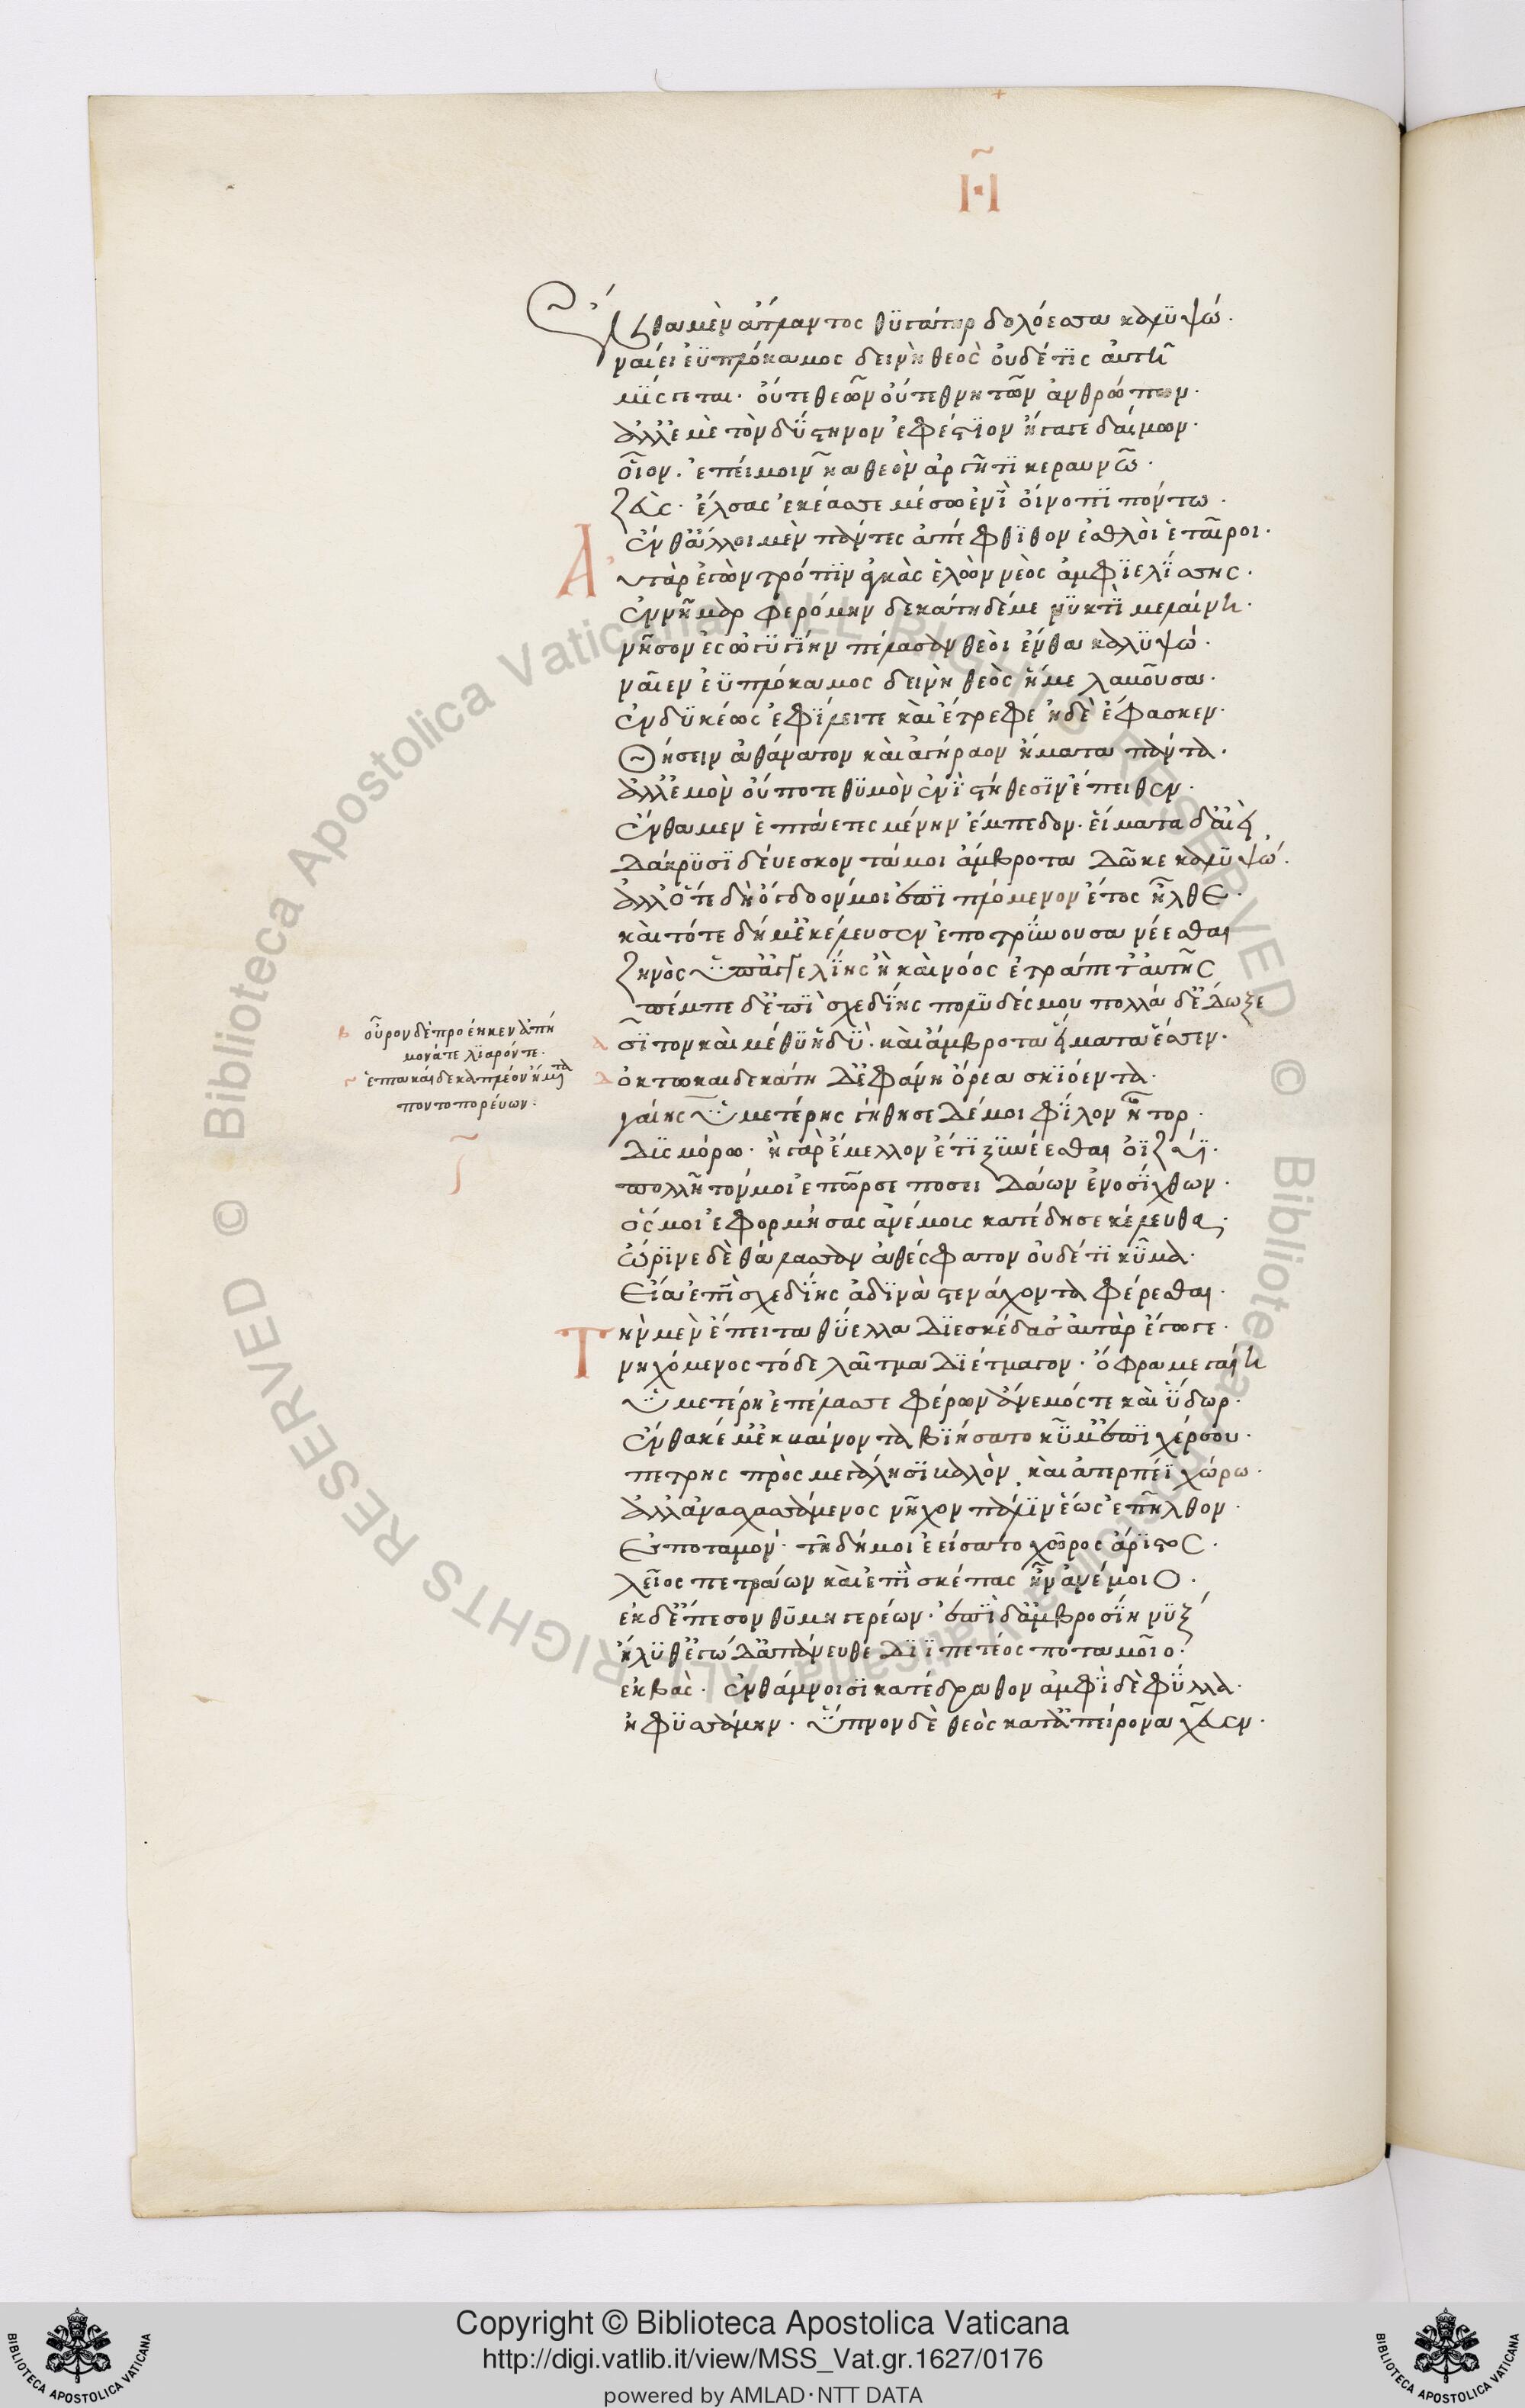 Η
Ἔνθα μὲν ἄτλαντος θϋγάτηρ δολόεσσα καλϋψώ.
ναίει ἐϋπλόκαμος δεινὴ θεὸς οὐδέ τϊς αὐτῆ
μΐσγεται. οὔτε θεῶν οὔτε θνητῶν ἀνθρώπων.
ἀλλ' ἐμὲ τὸν δΰστηνον ἐφέστϊον ἤγαγε δαίμων.
οἶον. ἐπεί μοι νῆα θεὸν ἀργῆτϊ κεραυνῶ.
ζεὺς. ἔλσας ἐκέασσε μέσω ἐνῒ οἴνοπϊ πόντω.
Ἔνθ' ἄλλοι μὲν πάντες ἀπέφθϊθον ἐσθλοὶ ἑταῖροι.
Αὐτὰρ ἐγὼ τρόπϊν ἀγκὰς ἑλὼν νεὸς ἀμφϊελΐσσης.
ἐννῆμαρ φερόμην δεκάτη δέ με νϋκτῒ μελαίνη.
νῆσον ἐς ὠγϋγΐην πέλασαν θεοὶ ἔνθα καλϋψώ.
ναῖεν ἐϋπλόκαμος δεινὴ θεὸς ἥ με λαβοῦσα.
ἐνδϋκέως ἐφΐλει τε καὶ ἔτρεφε ἠδὲ ἔφασκεν.
Θήσειν ἀθάνατον καὶ ἀγήραον ἤματα πάντα.
ἀλλ' ἐμὸν οὔποτε θϋμὸν ἐνῒ στήθεσϊν ἔπειθεν.
Ἔνθα μὲν ἑπτάετες μένην ἔμπεδον. εἵματα δ' αἰεὶ
Δάκρϋσϊ δεύεσκον τά μοι ἄμβροτα Δῶκε καλϋψώ.
ἀλλ' ὅτε δὴ ὄγδοόν μοι ἐπϊπλόμενον ἔτος ἦλθε.
καὶ τότε δή μ' ἐκέλευσεν ἐποτρΰνουσα νέεσθαι
ζηνὸς ὑπ' ἀγγελΐης ἢ καὶ νόος ἐτράπετ' αὐτῆς
πέμπε δ' ἐπῒ σχεδΐης πολϋδέσμου πολλὰ δ' ἔδωκε
σῖτον καὶ μέθϋ ἡδΰ. καὶ ἄμβροτα εἵματα ἕσσεν.
ὀκτωκαιδεκάτη Δ' ἐφάνη ὄρεα σκϊόεντα.
γαίης ὑμετέρης γήθησε Δέ μοι φΐλον ἦτορ.
Δϋσμόρω. ἦ γὰρ ἔμελλον ἔτϊ ξϋνέεσθαι ὀϊζύϊ.
πολλῆ τήν μοι ἐπῶρσε ποσειΔάων ἐνοσΐχθων.
ὅς μοι ἐφορμήσας ἀνέμους κατέδησε κέλευθα.
Ὤρϊνε δὲ θάλασσαν ἀθέσφατον οὐδέ τϊ κῦμα.
Εἴα ἐπῒ σχεδΐης ἀδϊνὰ στενάχοντα φέρεσθαι.
Τὴν μὲν ἔπειτα θΰελλα Δϊεσκέδασ' αὐτὰρ ἔγωγε.
νηχόμενος τόδε λαῖτμα Δϊέτμαγον. ὄφρα με γαίη
ὑμετέρη ἐπέλασσε φέρων ἄνεμός τε καὶ ὕδωρ.
Ἔνθα κέ μ' ἐκβαίνοντα βϊήσατο κῦμ' ἐπϊ χέρσου.
πέτρης πρὸς μεγάλησϊ βαλὸν καὶ ἀτερπέϊ χώρω.
ἀλλ' ἀναχασσάμενος νῆχον πάλϊν ἕως ἐπῆλθον.
Ἐς ποταμόν. τῆ δή μοι ἐείσατο χῶρος ἄρϊστος.
λεῖος πετράων καὶ ἐπῒ σκέπας ἦν ἀνέμοιο.
ἐκ δ' ἔπεσον θϋμηγερέων. ἐπῒ δ' ἀμβροσΐη νϋξ
ἤλϋθ' ἐγὼ Δ' ἀπάνευθε Δϊϊπετέος ποταμοῖο.
ἐκβὰς. ἐν θάμνοισϊ κατέδραθον ἀμφῒ δὲ φΰλλα.
ἠφϋσάμην. ὕπνον δὲ θεὸς κατ' ἀπείρονα χεῦεν.
β οὖρον δὲ προέηκεν ἀπή
μονά τε λϊαρόν τε.
γ ἑπτὰ καὶ δέκα πλέον ἤματα
ποντοπορεύων.
Copyright © Biblioteca Apostolica Vaticana
http://digi.vatlib.it/view/MSS_Vat.gr.1627/0176
powered by AMLAD·NTT DATA
BIBLIOTECA APOSTOLICA VATICANA
BIBLIOTECA APOSTOLICA VATICANA
© Biblioteca Apostolica Vaticana ALL RIGHTS RESERVED
© Biblioteca Apostolica Vaticana ALL RIGHTS RESERVED